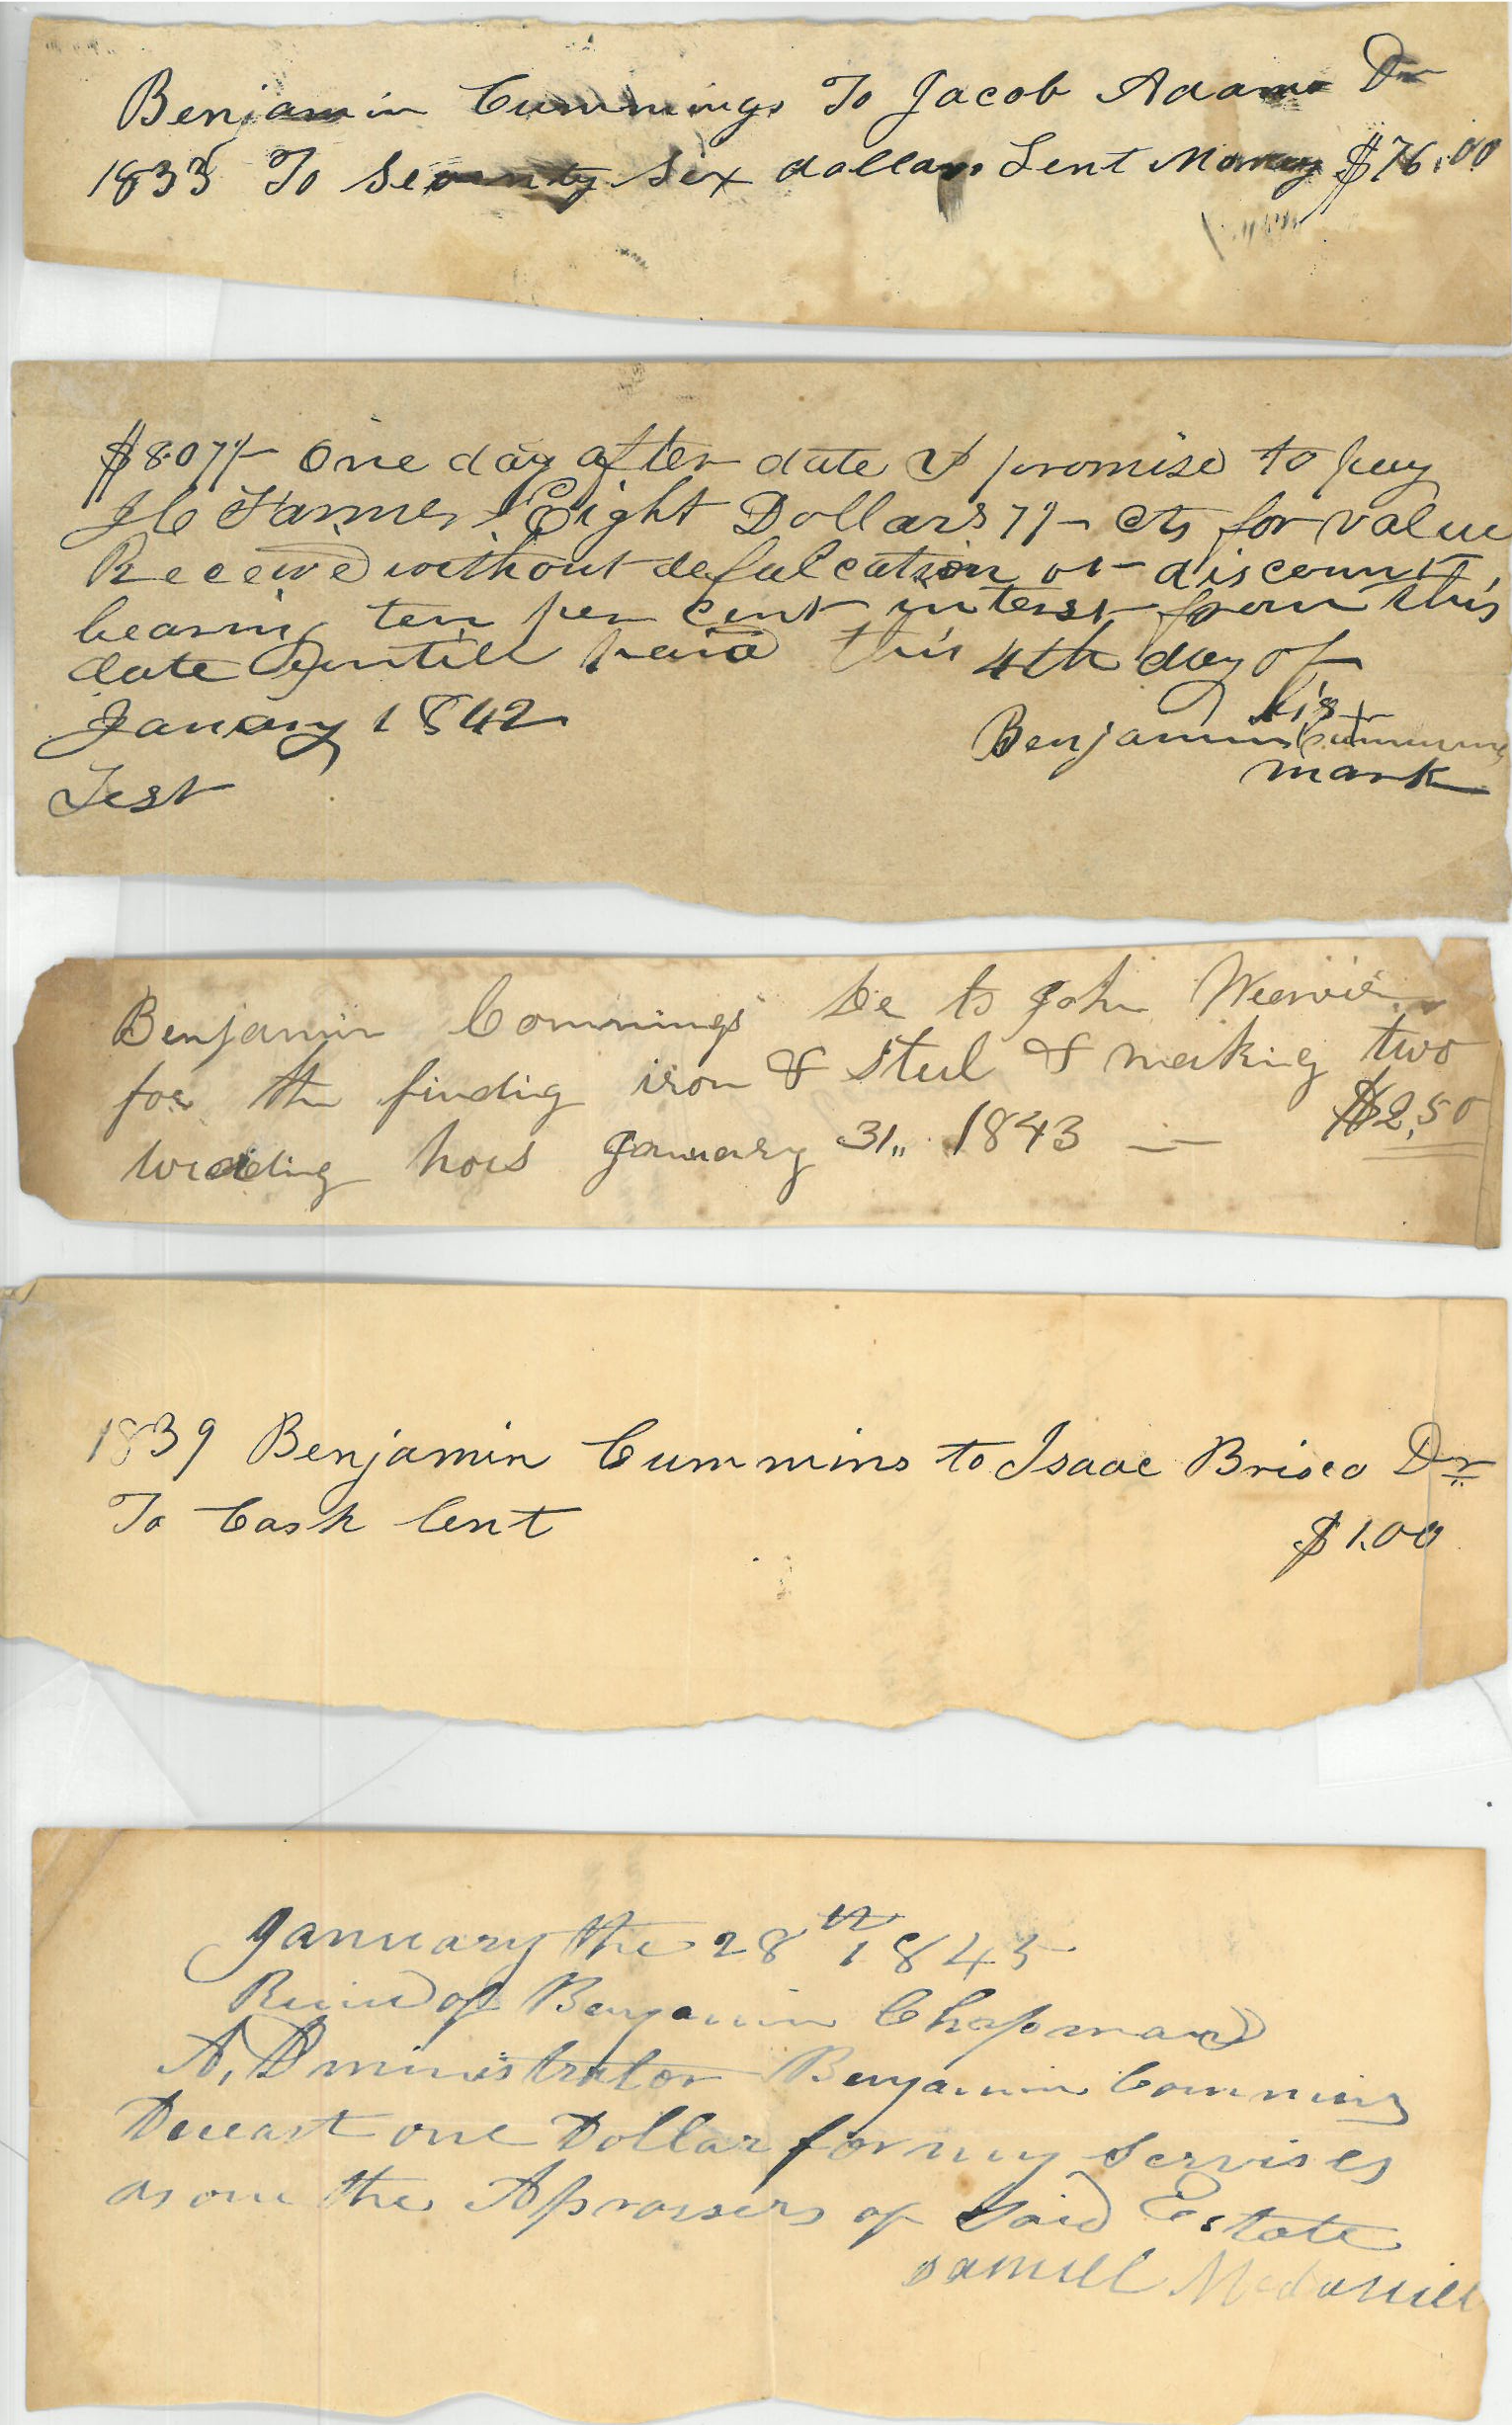 Benjamin Cummings To Jacob Adams Dr
1833 To Seventy Six dollars Lent Money $76.00
$8.07½ One day after date I promise to pay
J C Farmer Eight Dollars 7½ cts for value
Received without defalcation or discount
bearing ten per cent interst from this
date untill paid this 4th day of
January 1842
his
Benjamin + Cummings
mark
Test
Benjamin Commings De to John
for the findig iron & steel & making two
weading hoes January 31,, 1843 — $2,50
1839 Benjamin Cummins to Isaac Brisco Dr
To Cash lent
$1.00
January the 28th 1845
Recived of Benjamin Chapman
A, Dministrator Benjamin Comming
Deceast one Dollar for my Servises
as one the Aprassers of Said Estate
Samuel